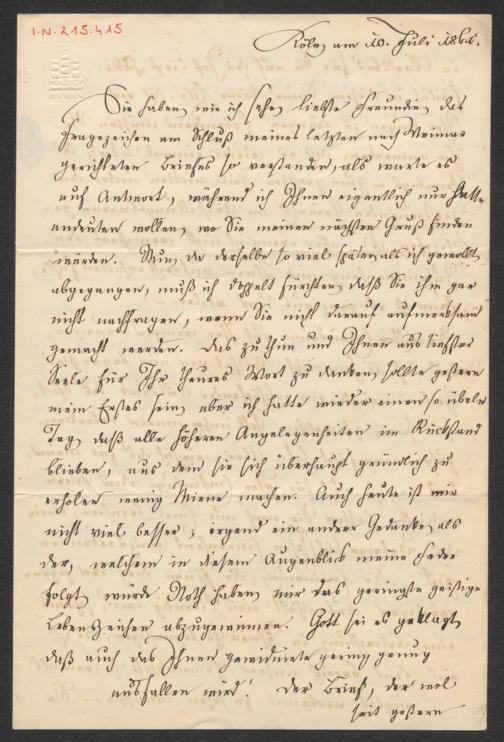 I.N. 215.415
Köln am 10. Juli 1861.
Sie haben, wie ich sehe, liebste Freundin, das
Fragezeichen am Schluß meines letzten nach Weimar
gerichteten Briefes so verstanden, als warte es
auf Antwort, während ich Ihnen eigentlich nur hatte
andeuten wollen, wo Sie meinen nächsten Gruß finden
würden. Nun, da derselbe so viel später als ich gewollt
abgegangen, muß ich doppelt fürchten, daß Sie ihm gar
nicht nachfragen, wenn Sie nicht darauf aufmerksam
gemacht werden. Das zu thun und Ihnen aus tiefster
Seele für Ihr theures Wort zu danken, sollte gestern
mein Erstes sein, aber ich hatte wieder einen so übeln
Tag, daß alle höheren Angelegenheiten im Rückstand
blieben, aus dem sie sich überhaupt gründlich zu
erholen wenig Miene machen. Auch heute ist mir
nicht viel besser; irgend ein andrer Gedanke, als
der, welchem in diesem Augenblick meine Feder
folgt, würde Noth haben, mir das geringste geistige
Lebenszeichen abzugewinnen. Gott sei es geklagt,
daß auch das Ihnen gewidmete gering genug
ausfallen wird! Der Brief, der wol
seit gestern